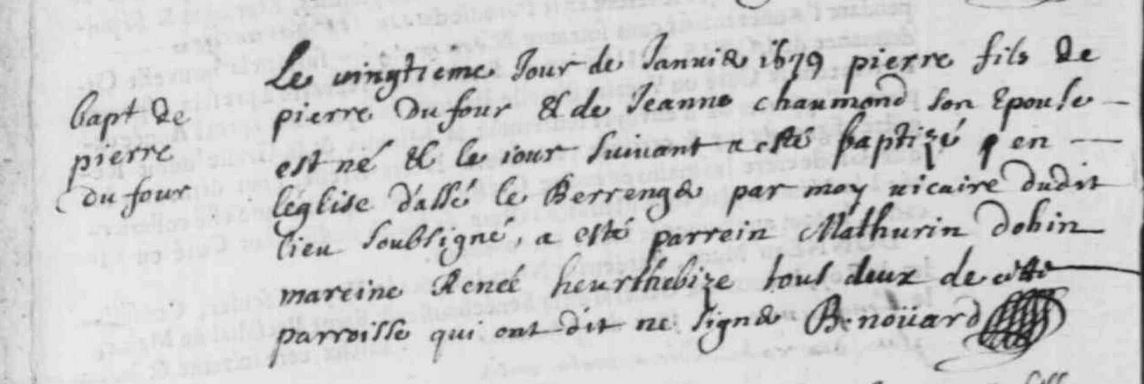 Le vingtieme Jour de Janvier 1679 pierre fils de
bapt de
pierre
du four
pierre Du four & de Jeanne chaumond son Epouse
est né & le iour suivant a esté baptizé en
léglise d'assé le Berrenger par moy vicaire dudit
lieu soubsigné, a esté parrein Mathurin dobin
mareine Reneé heurthebize tous deux de cette
parroisse qui ont dit ne signer B. noüard